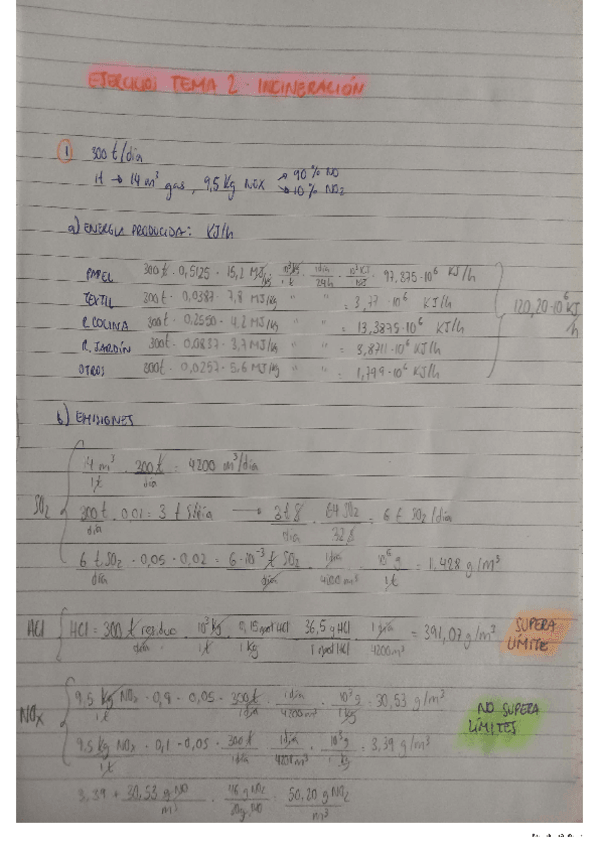 EJERCICIOS TEMA 2 - INCINERACIÓN
1 300 t/dia
H → 14 m³ gas, 9,5 Kg NOX → 90% NO
→ 10% NO2
a) ENERGÍA PRODUCIDA: KJ/h
PAPEL 300t · 0,5125 · 15,2 MJ/kg · 10³kg/1t · 1dia/24h · 10³KJ/1MJ = 97,375·10⁶ KJ/h
TEXTIL 300t · 0,0387 · 7,8 MJ/kg " " = 3,77 · 10⁶ KJ/h
R. COCINA 300t · 0,2550 · 4,2 MJ/kg " " = 13,3875·10⁶ KJ/h
R. JARDÍN 300t · 0,0837 · 3,7 MJ/kg " " = 3,8711·10⁶ KJ/h
OTROS 300t · 0,0257 · 5,6 MJ/kg " " = 1,799·10⁶ KJ/h
120,20·10⁶ KJ/h
b) EMISIONES
14 m³/1t · 300t/dia = 4200 m³/dia
SO2 300t/dia · 0,01 = 3 t S/dia → 3t S/dia · 64 SO2/32 S = 6 t SO2/dia
6 t SO2/dia · 0,05 · 0,02 = 6·10⁻³ t SO2/dia · 1dia/4200m³ · 10⁶ g/1t = 1,428 g/m³
HCl HCl = 300t residuo/dia · 10³ kg/1t · 0,15 mol HCl/1 kg · 36,5 g HCl/1 mol HCl · 1 dia/4200m³ = 391,07 g/m³ SUPERA LÍMITE
NOx 9,5 kg NOx/1t · 0,9 · 0,05 · 300t/1dia · 1dia/4200m³ · 10³g/1kg = 30,53 g/m³
NO SUPERA LÍMITES
9,5 kg NOx/1t · 0,1 · 0,05 · 300t/1dia · 1dia/4200m³ · 10³g/1kg = 3,39 g/m³
3,39 + 30,53 g NO/m³ · 46 g NO2 · 50,20 g NO2/m³